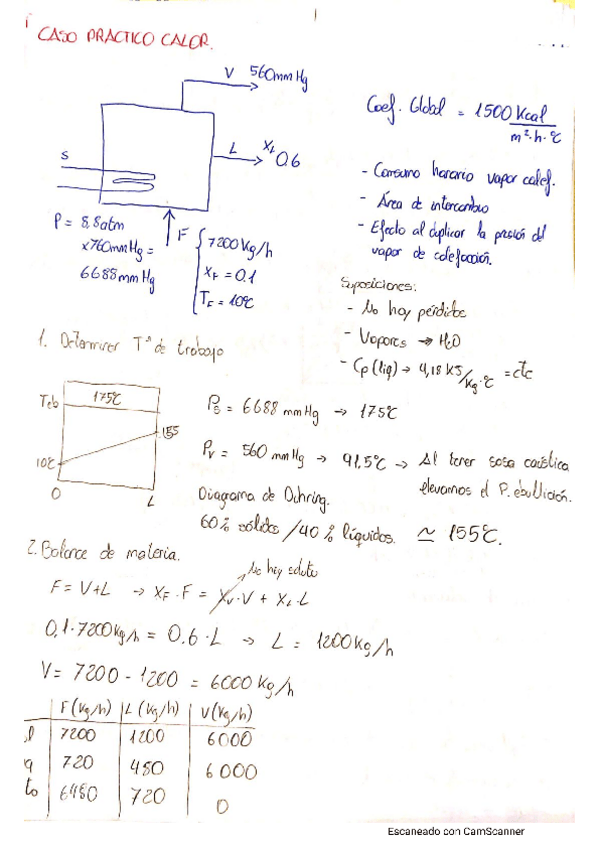 CASO PRACTICO CALOR.
V 560mm Hg
Coef. Global = 1500 Kcal
m²·h·ºC
L XL 0.6
S
- Consumo horario vapor calef.
- Área de intercambio
- Efecto al duplicar la presión del
vapor de calefacción.
P = 8,8atm
x760mmHg =
6688 mmHg
F { 7200 Kg/h
XF = 0.1
TF = 10ºC
Suposiciones:
- No hay pérdidas
- Vapores → H2O
- Cp (liq) → 4,18 KJ/Kg·ºC = cte
1. Determinar Tª de trabajo
Teb 175ºC
155
10ºC
0 L
PS = 6688 mmHg → 175ºC
PV = 560 mmHg → 91,5ºC → Al tener sosa caústica
elevamos el P. ebullición.
Diagrama de Duhring.
60% sólidos / 40% líquidos. ≃ 155ºC.
2. Balance de materia.
No hay soluto
F = V+L → XF · F = XV · V + XL · L
0,1 · 7200 Kg/h = 0,6 · L → L = 1200 Kg/h
V = 7200 - 1200 = 6000 Kg/h
F (Kg/h) L (Kg/h) V (Kg/h)
l 7200 1200 6000
q 720 480 6000
to 6480 720 0
Escaneado con CamScanner